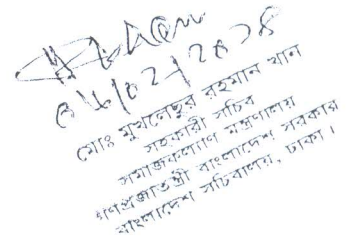 ০৮/০২/২০২৪
মোঃ মুখলেছুর রহমান খান
সহকারী সচিব
সমাজকল্যাণ মন্ত্রণালয়
গণপ্রজাতন্ত্রী বাংলাদেশ সরকার
বাংলাদেশ সচিবালয়, ঢাকা।